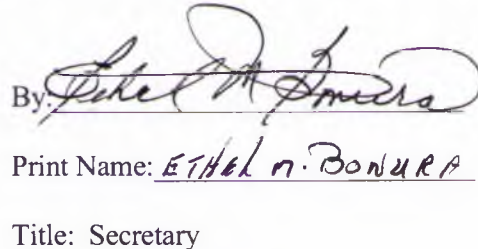 By: Ethel M Bonura
Print Name: ETHEL M. BONURA
Title: Secretary